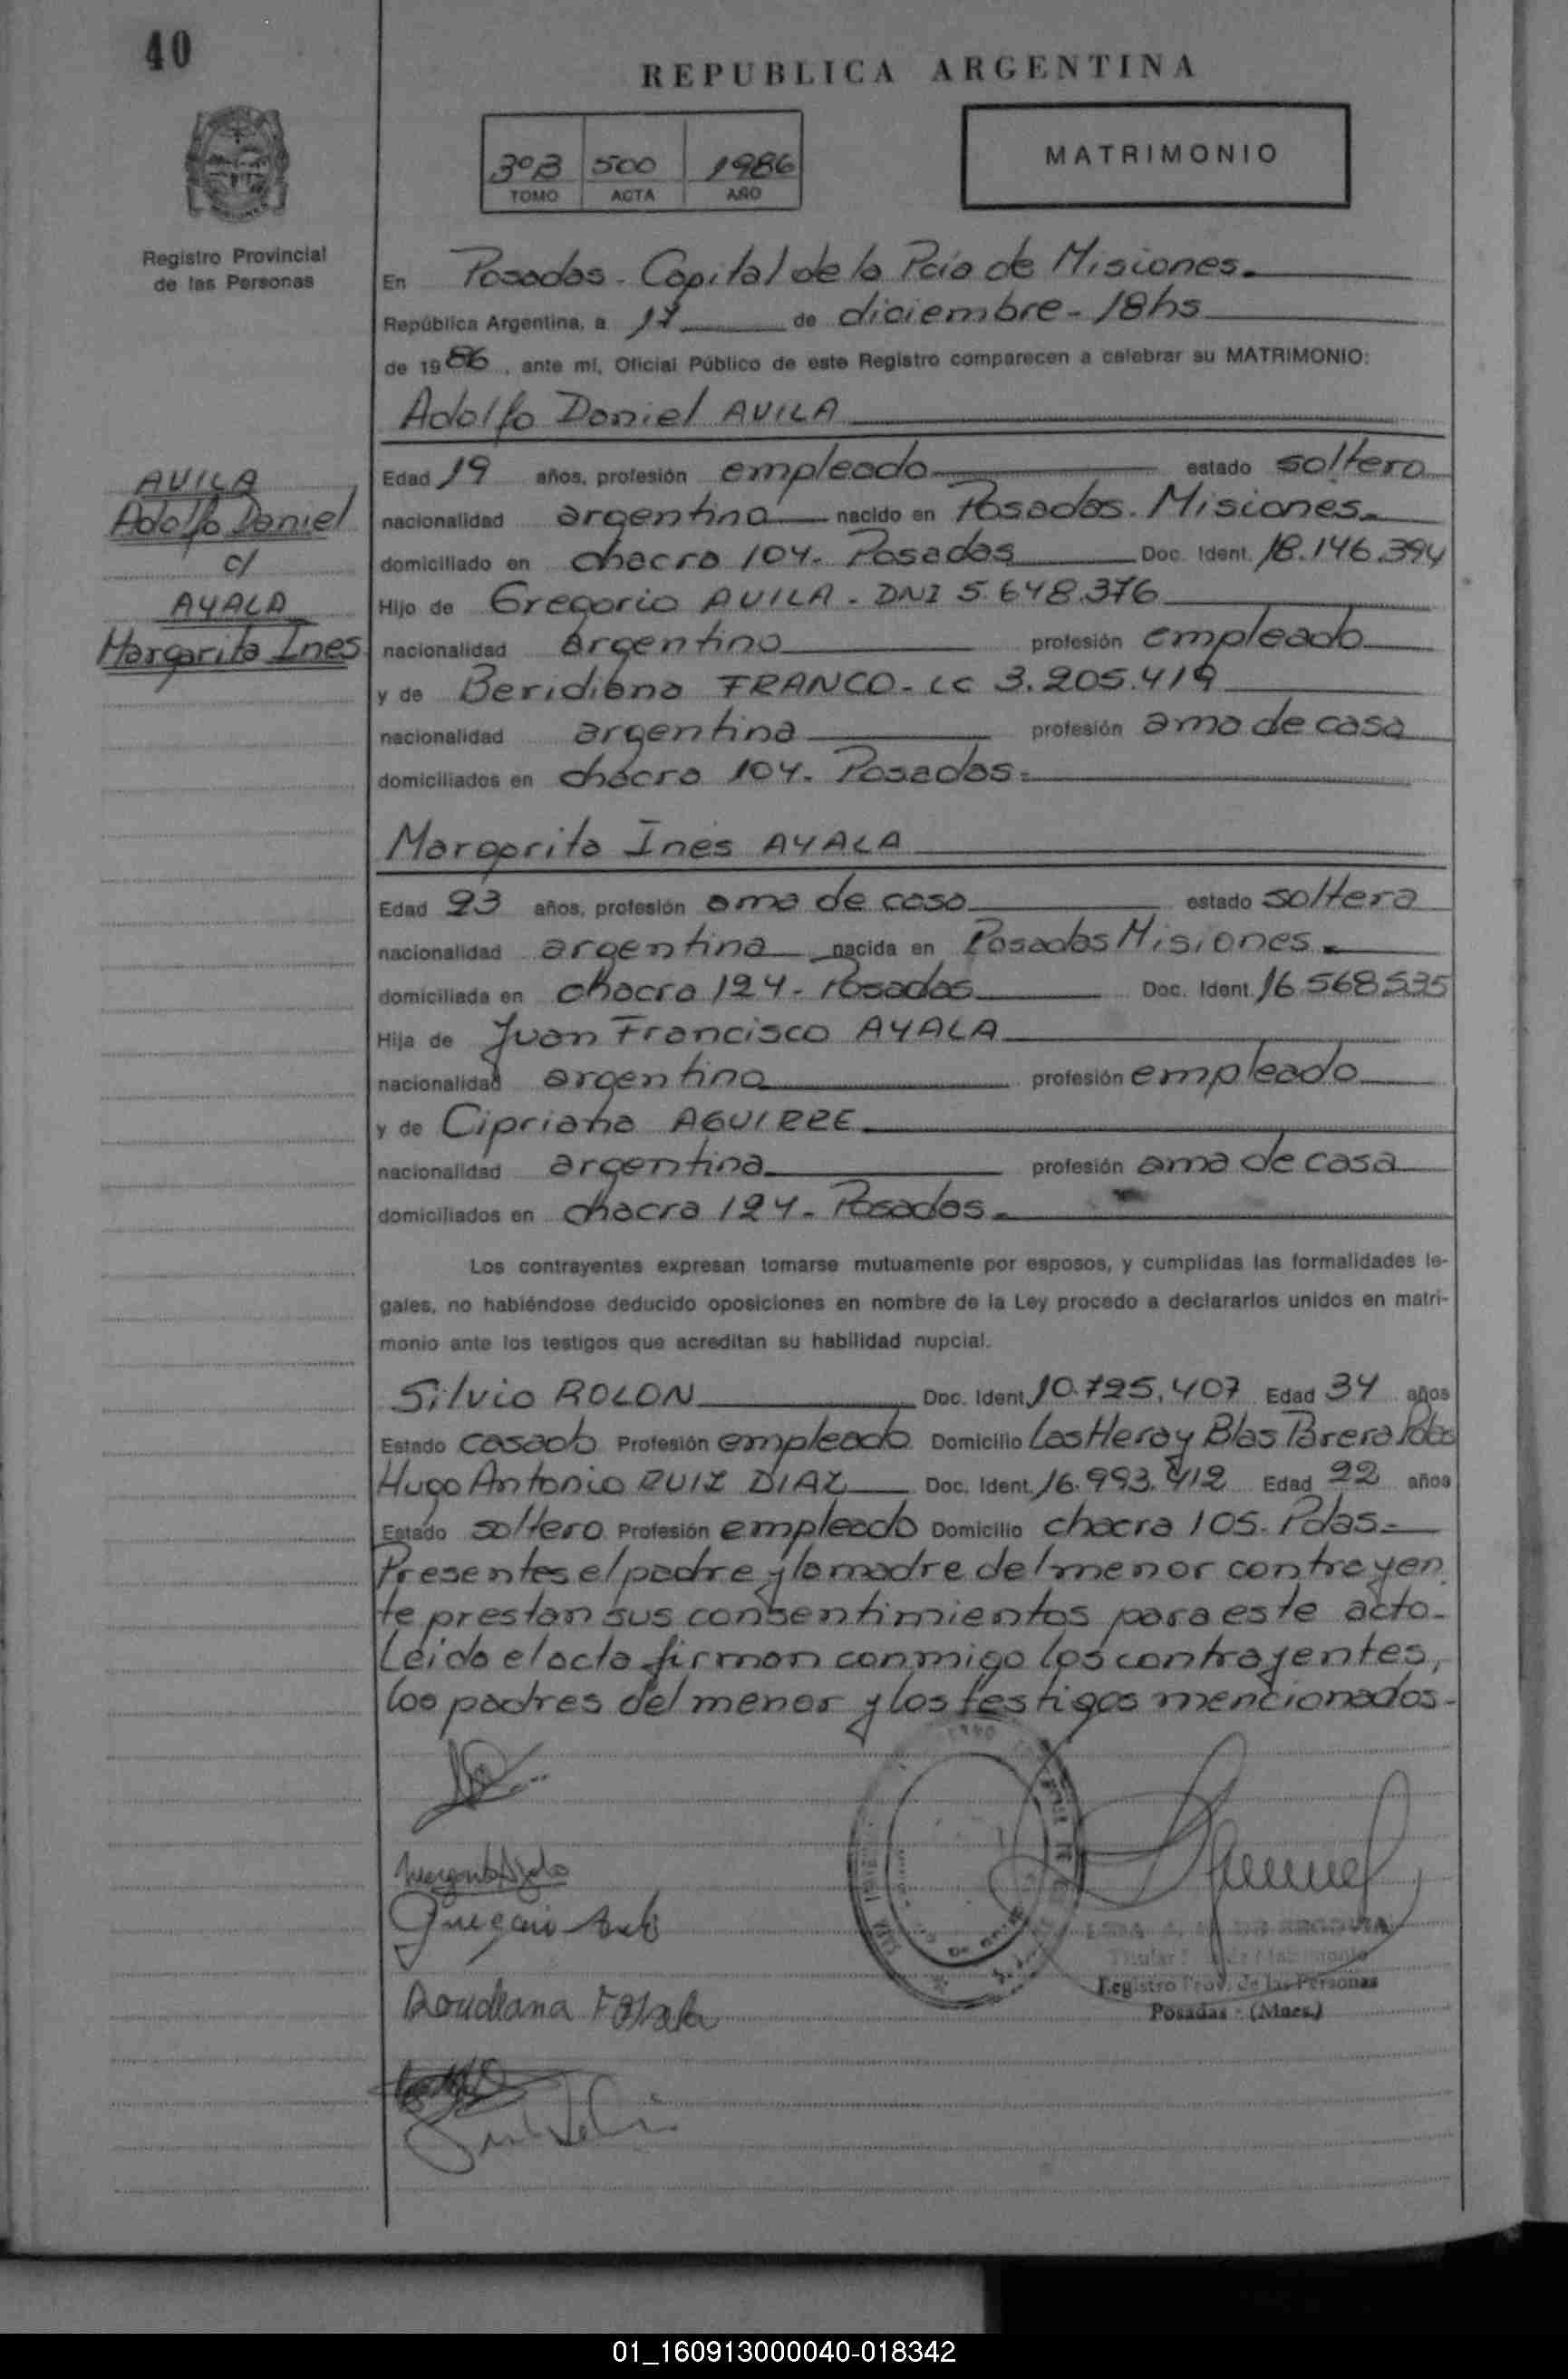 40
REPUBLICA ARGENTINA
3ºB 500 1986
TOMO ACTA AÑO
MATRIMONIO
Registro Provincial
de las Personas
En Posadas - Capital de la Pcia de Misiones.
República Argentina, a 17 de diciembre - 18hs
de 1986, ante mí, Oficial Público de este Registro comparecen a celebrar su MATRIMONIO:
Adolfo Daniel AVILA
AVILA
Adolfo Daniel
c/
AYALA
Margarita Ines
Edad 19 años, profesión empleado estado soltero
nacionalidad argentina nacido en Posadas. Misiones.
domiciliado en chacra 104. Posadas Doc. Ident. 18.146.394
Hijo de Gregorio AVILA - DNI 5.648.376
nacionalidad argentino profesión empleado
y de Beridiana FRANCO - LC 3.205.419
nacionalidad argentina profesión ama de casa
domiciliados en chacra 104. Posadas.
Margarita Ines AYALA
Edad 23 años, profesión ama de casa estado soltera
nacionalidad argentina nacida en Posadas Misiones.
domiciliada en chacra 124 - Posadas Doc. Ident. 16.568.535
Hija de Juan Francisco AYALA
nacionalidad argentino profesión empleado
y de Cipriana AGUIRRE
nacionalidad argentina profesión ama de casa
domiciliados en chacra 124 - Posadas.
Los contrayentes expresan tomarse mutuamente por esposos, y cumplidas las formalidades le-
gales, no habiéndose deducido oposiciones en nombre de la Ley procedo a declararlos unidos en matri-
monio ante los testigos que acreditan su habilidad nupcial.
Silvio ROLON Doc. Ident. 10.725.407 Edad 34 años
Estado casado Profesión empleado Domicilio Las Heras y Blas Parera Pdas
Hugo Antonio RUIZ DIAZ Doc. Ident. 16.993.412 Edad 22 años
Estado soltero Profesión empleado Domicilio chacra 105. Pdas.
Presentes el padre y la madre del menor contrayen
te prestan sus consentimientos para este acto.
Leida el acta firman conmigo los contrayentes,
los padres del menor y los testigos mencionados.
Registro Prov. de las Personas
Posadas - (Mnes.)
01_160913000040-018342